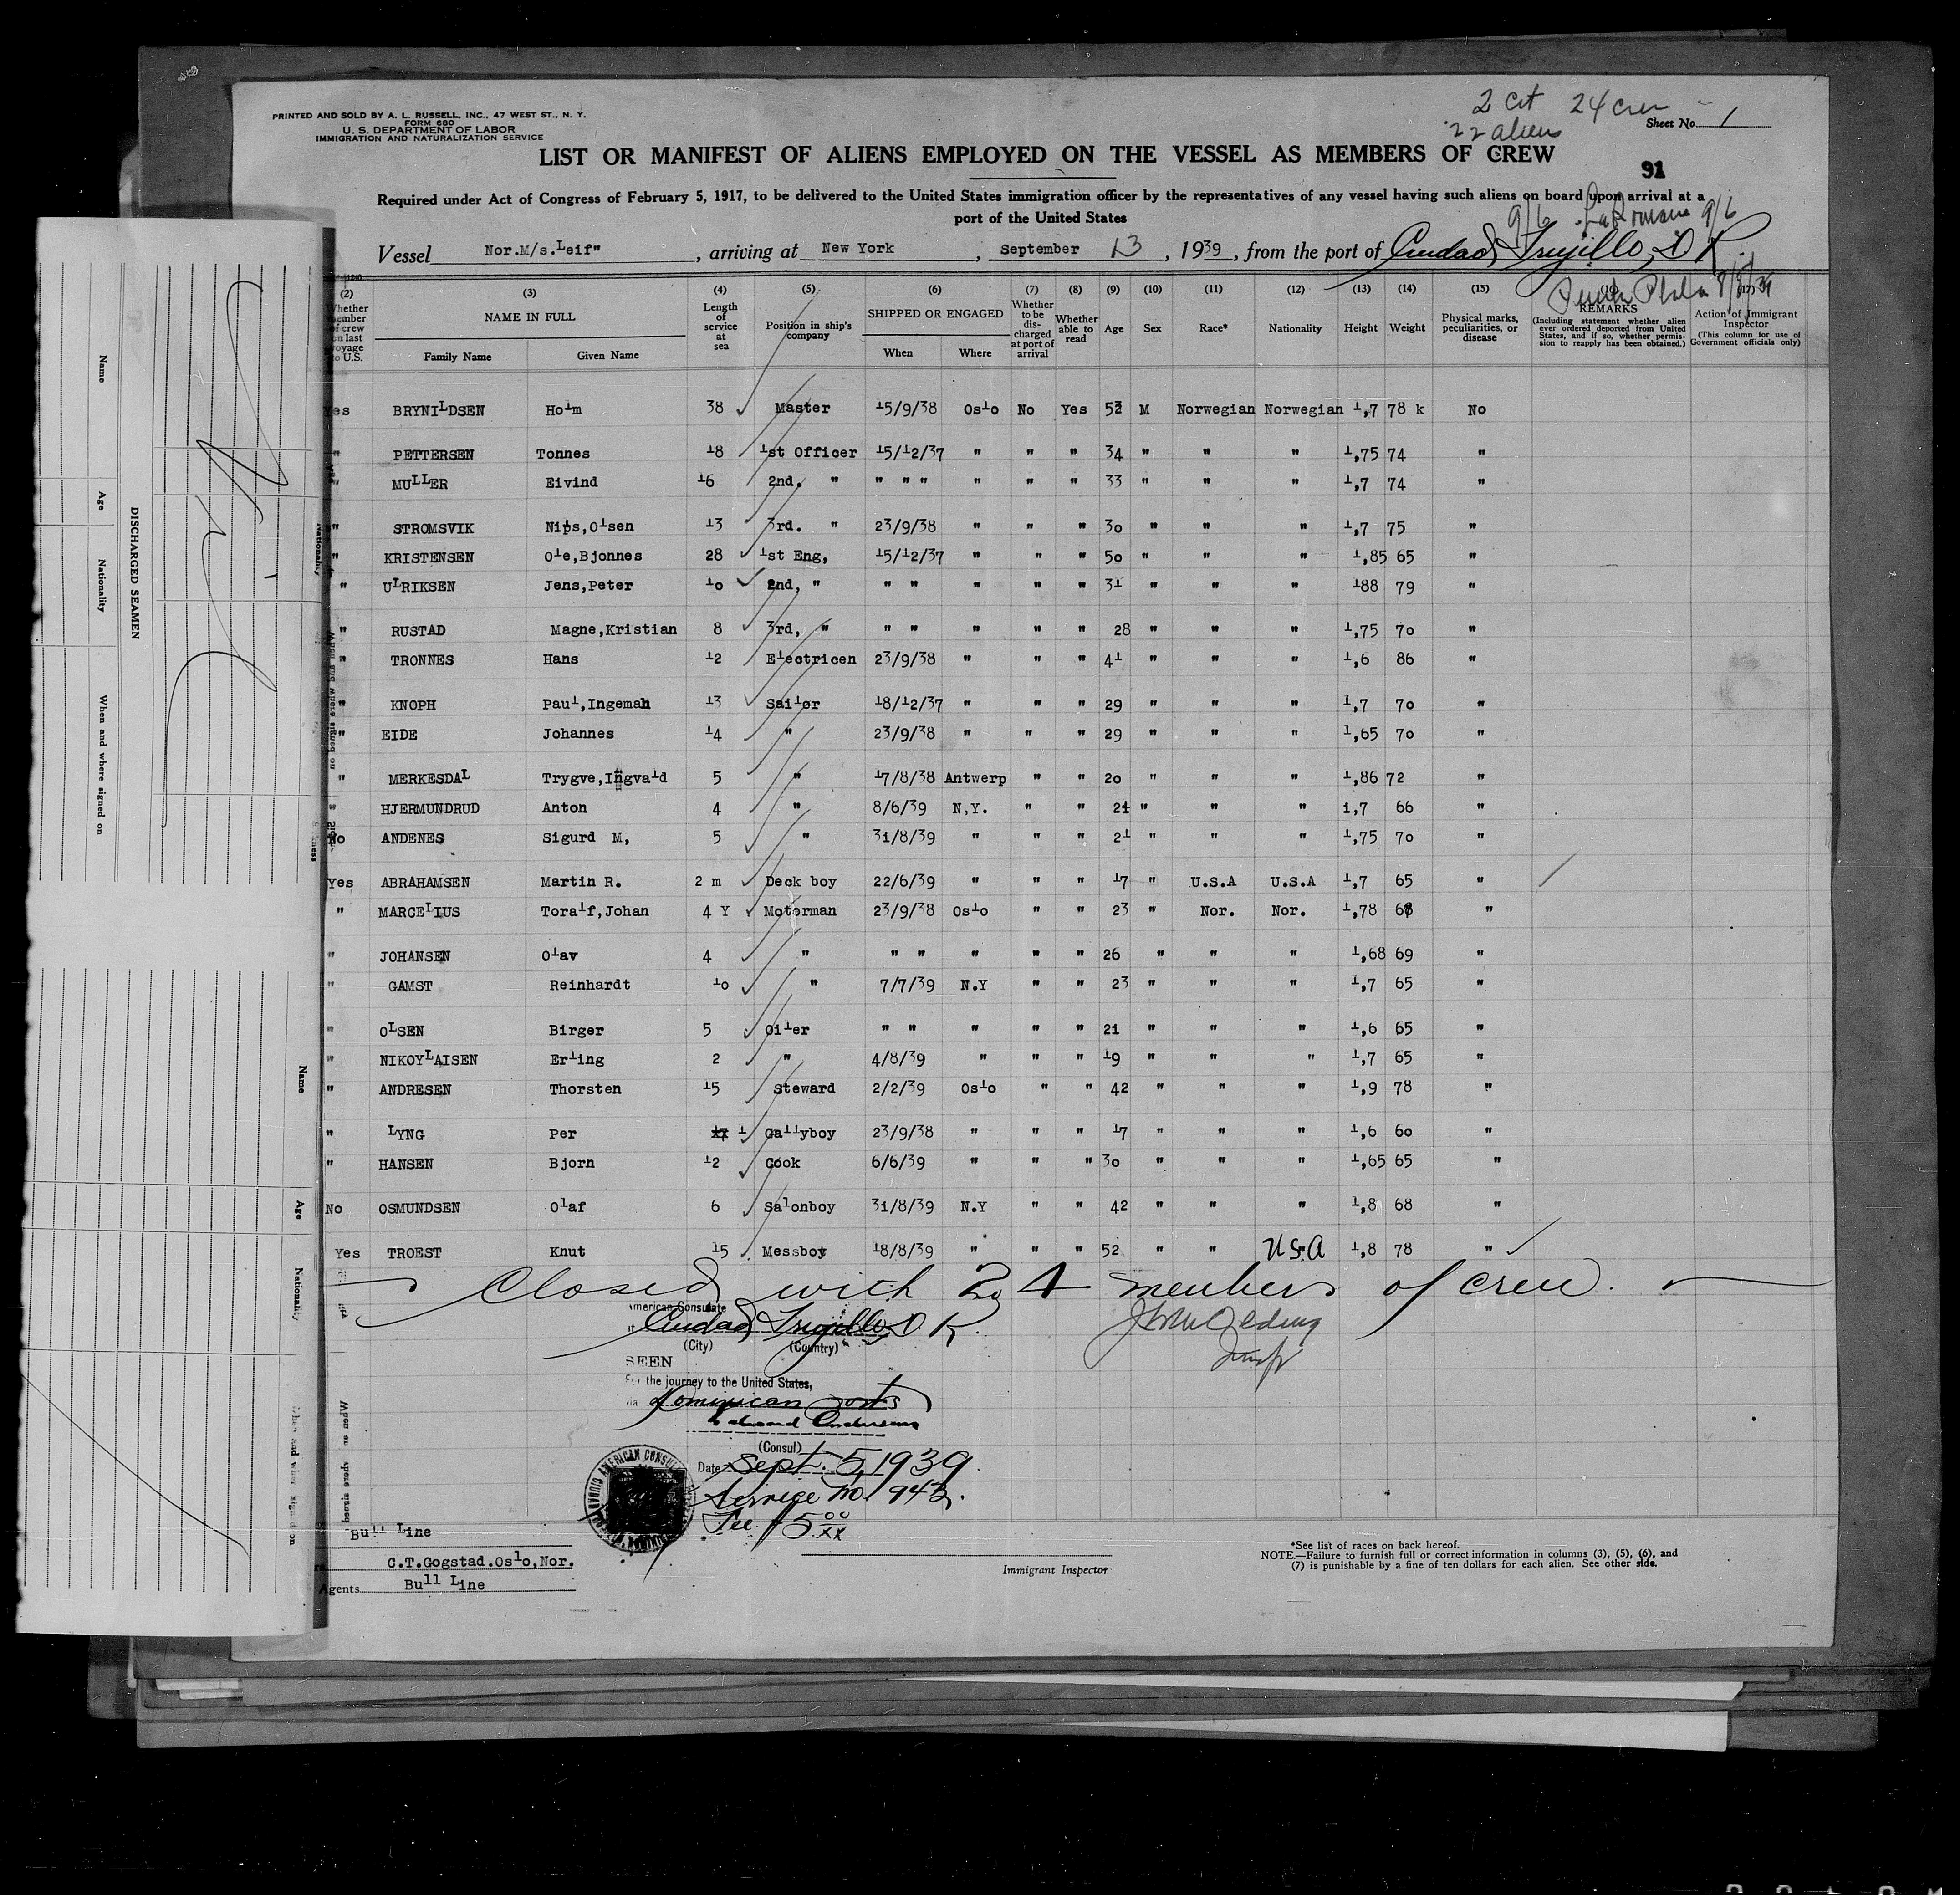 2 cit 24 crew
22 aliens
PRINTED AND SOLD BY A. L. RUSSELL, INC., 47 WEST ST., N. Y.
FORM 680
U. S. DEPARTMENT OF LABOR
IMMIGRATION AND NATURALIZATION SERVICE
Sheet No. 1
LIST OR MANIFEST OF ALIENS EMPLOYED ON THE VESSEL AS MEMBERS OF CREW
91
Required under Act of Congress of February 5, 1917, to be delivered to the United States immigration officer by the representatives of any vessel having such aliens on board upon arrival at a
port of the United States
9/6 La Romana 9/6
Vessel Nor.M/s.Leif" , arriving at New York , September 13 , 1939 , from the port of Ciudad Trujillo, D R.
(2) Whether member of crew on last voyage to U.S. (3) NAME IN FULL Family Name Given Name (4) Length of service at sea (5) Position in ship's company (6) SHIPPED OR ENGAGED When Where (7) Whether to be discharged at port of arrival (8) Whether able to read (9) Age (10) Sex (11) Race* (12) Nationality (13) Height (14) Weight (15) Physical marks, peculiarities, or disease (16) REMARKS (Including statement whether alien ever ordered deported from United States, and if so, whether permission to reapply has been obtained.) (17) Action of Immigrant Inspector (This column for use of Government officials only)
Yes BRYNILDSEN Holm 38 Master 15/9/38 Oslo No Yes 52 M Norwegian Norwegian 1,7 78 k No
" PETTERSEN Tonnes 18 1st Officer 15/12/37 " " " 34 " " " 1,75 74 "
" MULLER Eivind 16 2nd. " " " " " " " 33 " " " 1,7 74 "
" STROMSVIK Nips,Olsen 13 3rd. " 23/9/38 " " " 30 " " " 1,7 75 "
" KRISTENSEN Ole,Bjonnes 28 1st Eng, 15/12/37 " " " 50 " " " 1,85 65 "
" ULRIKSEN Jens,Peter 10 2nd, " " " " " " 31 " " " 188 79 "
" RUSTAD Magne,Kristian 8 3rd, " " " " " " 28 " " " 1,75 70 "
" TRONNES Hans 12 Electricen 23/9/38 " " " 41 " " " 1,6 86 "
" KNOPH Paul,Ingeman 13 Sailor 18/12/37 " " " 29 " " " 1,7 70 "
" EIDE Johannes 14 " 23/9/38 " " " 29 " " " 1,65 70 "
" MERKESDAL Trygve,Ingvald 5 " 17/8/38 Antwerp " " 20 " " " 1,86 72 "
" HJERMUNDRUD Anton 4 " 8/6/39 N,Y. " " 21 " " " 1,7 66 "
No ANDENES Sigurd M, 5 " 31/8/39 " " " 21 " " " 1,75 70 "
Yes ABRAHAMSEN Martin R. 2 m Deck boy 22/6/39 " " " 17 " U.S.A U.S.A 1,7 65 "
" MARCELIUS Toralf,Johan 4 Y Motorman 23/9/38 Oslo " " 23 " Nor. Nor. 1,78 68 "
" JOHANSEN Olav 4 " " " " " " 26 " " " 1,68 69 "
" GAMST Reinhardt 10 " 7/7/39 N.Y " " 23 " " " 1,7 65 "
" OLSEN Birger 5 Oiler " " " " " 21 " " " 1,6 65 "
" NIKOYLAISEN Erling 2 " 4/8/39 " " " 19 " " " 1,7 65 "
" ANDRESEN Thorsten 15 Steward 2/2/39 Oslo " " 42 " " " 1,9 78 "
" LYNG Per 17 1 Gallyboy 23/9/38 " " " 17 " " " 1,6 60 "
" HANSEN Bjorn 12 Cook 6/6/39 " " " 30 " " " 1,65 65 "
No OSMUNDSEN Olaf 6 Salonboy 31/8/39 N.Y " " 42 " " " 1,8 68 "
Yes TROEST Knut 15 Messboy 18/8/39 " " " 52 " " U.S.A 1,8 78 "
Closed with 24 members of crew.
American Consulate
Ciudad Trujillo, D. R.
(City) (Country)
SEEN
For the journey to the United States,
via Dominican ports
(Consul)
Date Sept. 5, 1939.
Service No. 943.
Fee $5 00/xx
AMERICAN CONSUL
Bull Line
C.T.Gogstad.Oslo,Nor.
Agents Bull Line
Immigrant Inspector
*See list of races on back hereof.
NOTE.—Failure to furnish full or correct information in columns (3), (5), (6), and
(7) is punishable by a fine of ten dollars for each alien. See other side.
DISCHARGED SEAMEN
Name
Age
Nationality
When and where signed on
Name
Age
Nationality